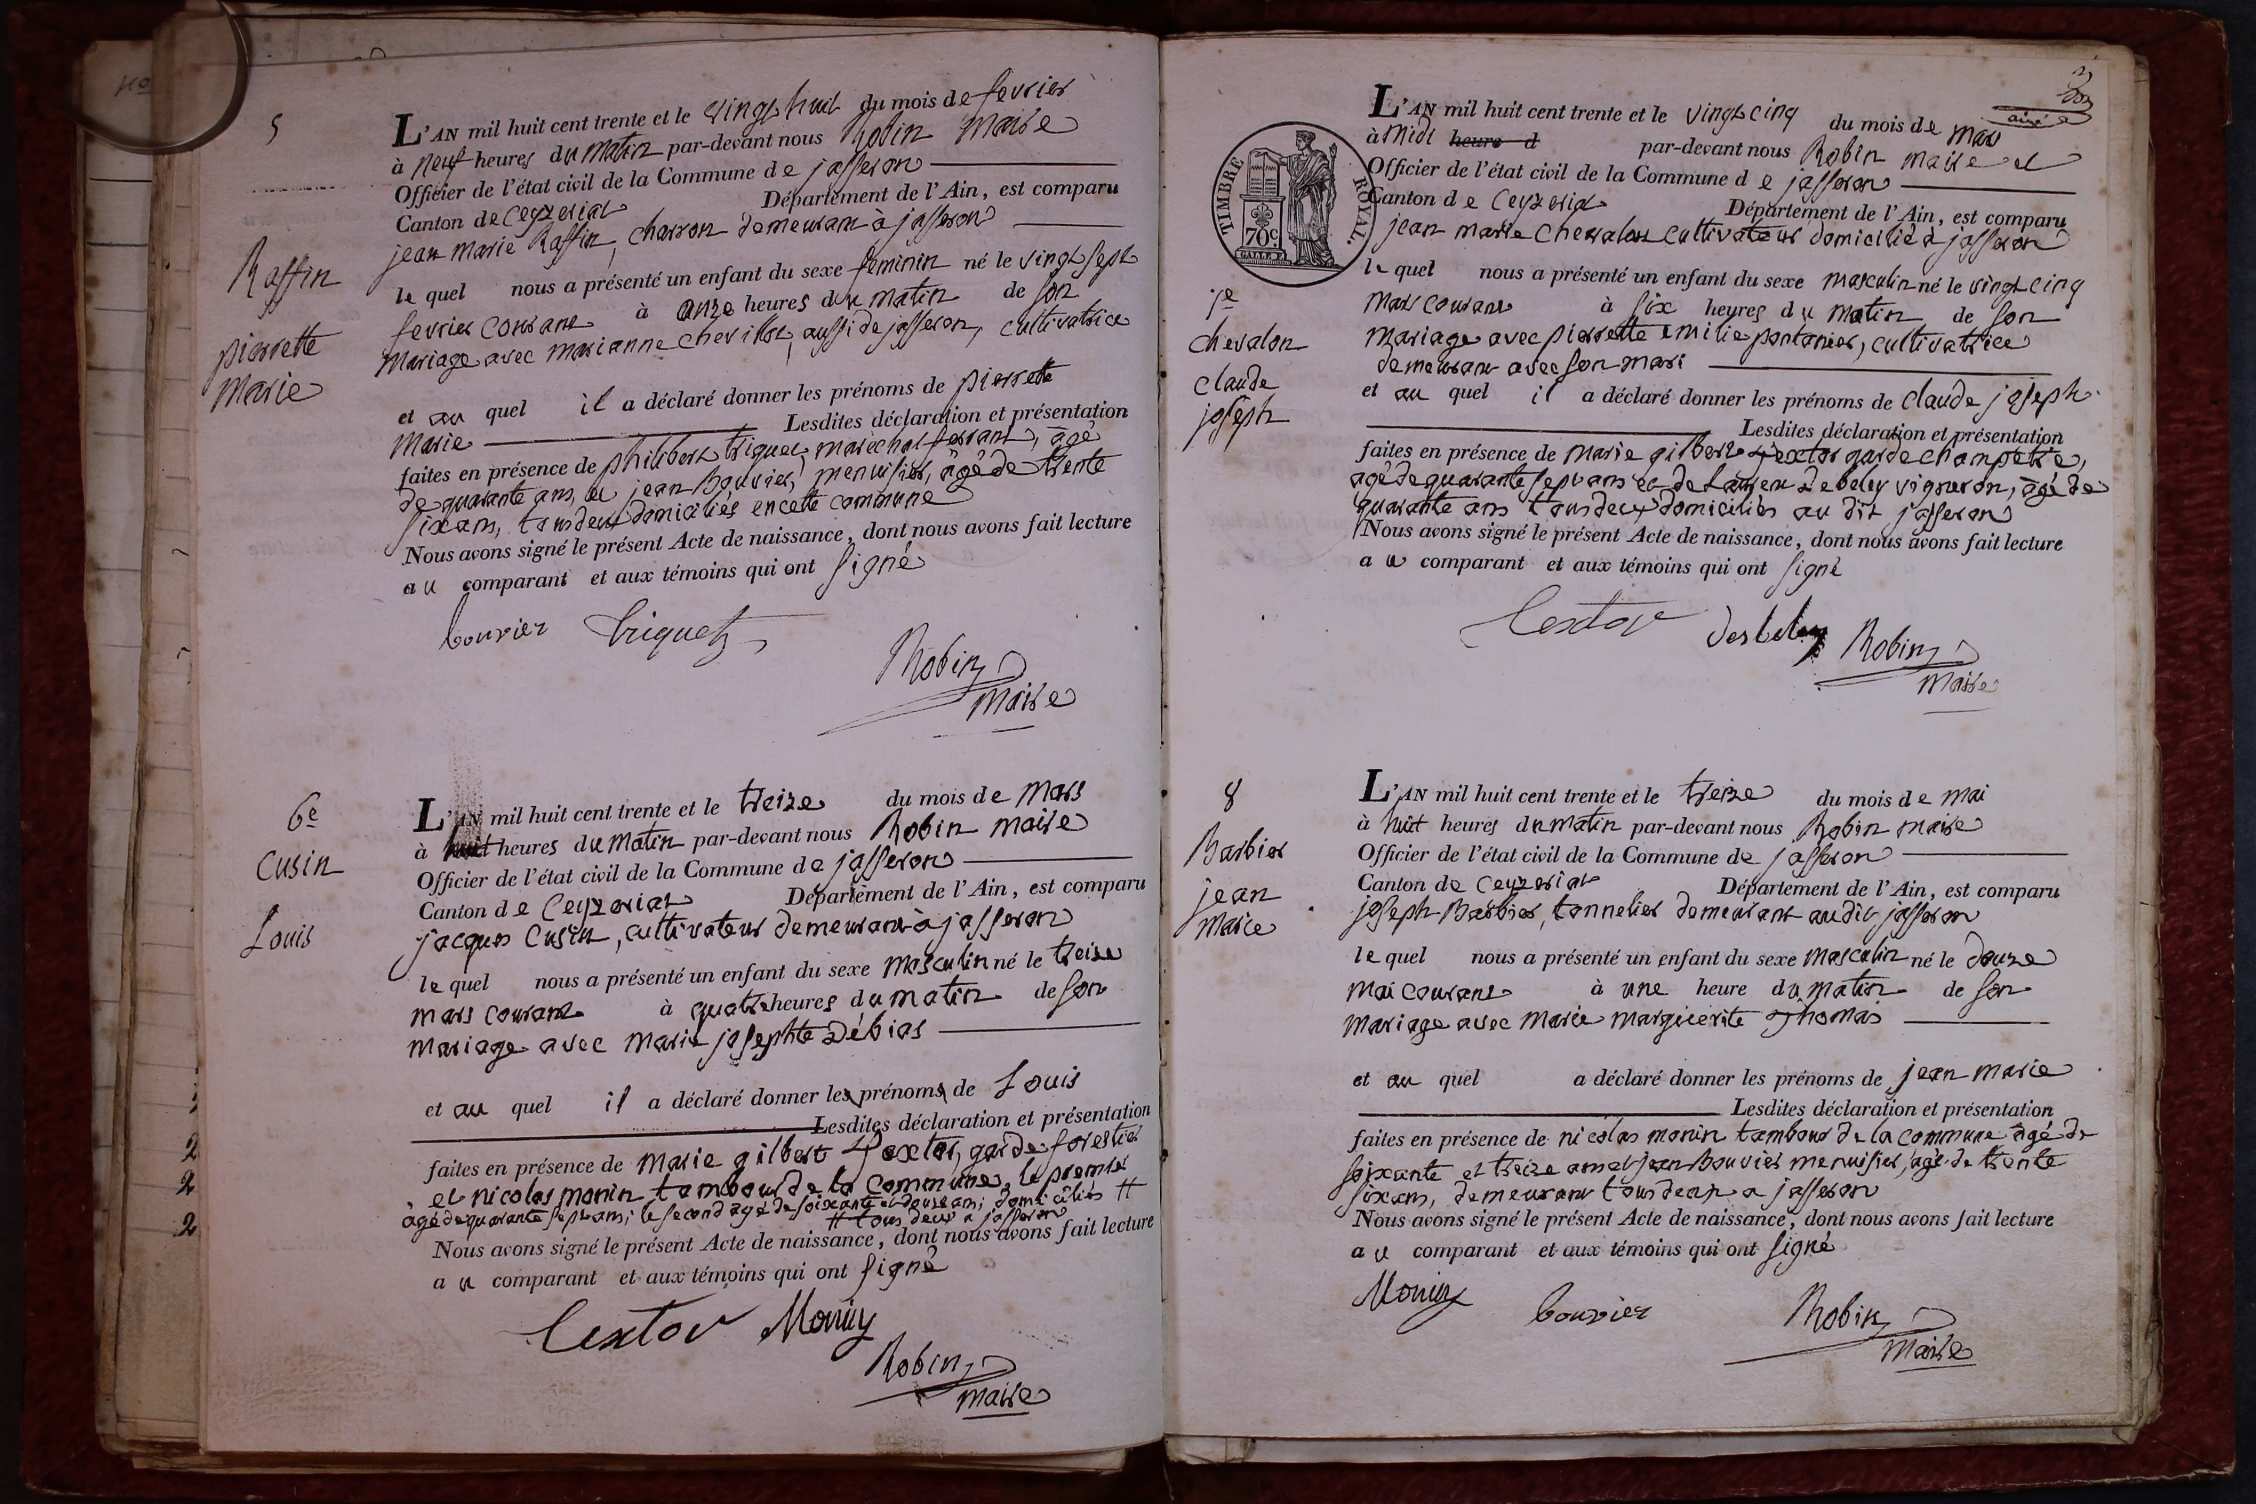 5
Raffin
pierrette
Marie
L'AN mil huit cent trente et le vingt huit du mois de fevrier
à neuf heures du matin par-devant nous Robin Maire
Officier de l'état civil de la Commune de jasseron
Canton de Ceyzeriat Département de l'Ain, est comparu
jean Marie Raffin, charron demeurant à jasseron
le quel nous a présenté un enfant du sexe feminin né le vingt sept
fevrier courant à onze heures du matin de son
Mariage avec marianne chevillot, aussi de jasseron, cultivatrice
et au quel il a déclaré donner les prénoms de pierrette
Marie Lesdites déclaration et présentation
faites en présence de philibert triquet marechal ferrant, âgé
de quarante ans, et jean bouvier, menuisier, âgé de trente
six ans, tous deux domiciliés en cette commune
Nous avons signé le présent Acte de naissance, dont nous avons fait lecture
au comparant et aux témoins qui ont signé
bouvier triquet
Robin
maire
6e
Cusin
Louis
L'AN mil huit cent trente et le treize du mois de Mars
à huit heures du matin par-devant nous Robin maire
Officier de l'état civil de la Commune de jasseron
Canton de Ceyzeriat Département de l'Ain, est comparu
jacques Cusin, cultivateur demeurant à jasseron
le quel nous a présenté un enfant du sexe masculin né le treize
mars courant à quatre heures du matin de son
mariage avec marie josephte Débias
et au quel il a déclaré donner les prénoms de Louis
Lesdites déclaration et présentation
faites en présence de marie gilbert Textor, garde forestier
et nicolas monin tambour de la commune, le premier
âgé de quarante sept ans; le second agé de soixante et douze ans; domiciliés #
# tous deux a jasseron
Nous avons signé le présent Acte de naissance, dont nous avons fait lecture
au comparant et aux témoins qui ont signé
Textor Moniny
Robin
maire
TIMBRE ROYAL.
70c
7e
Chevalon
Claude
joseph
L'AN mil huit cent trente et le vingt cinq du mois de mars
à Midi heure d par-devant nous Robin maire et
Officier de l'état civil de la Commune de jasseron
Canton de Ceyzeriat Département de l'Ain, est comparu
jean marie Chevalon cultivateur domicilié à jasseron
le quel nous a présenté un enfant du sexe masculin né le vingt cinq
mars courant à six heures du matin de son
Mariage avec pierrette emilie pontanier, cultivatrice
demeurant avec son mari
et au quel il a déclaré donner les prénoms de Claude joseph
Lesdites déclaration et présentation
faites en présence de marie gilbert Textor garde champetre,
agé de quarante sept ans et de Laurent Debeley vigneron, âgé de
quarante ans tous deux domiciliés au dit jasseron
Nous avons signé le présent Acte de naissance, dont nous avons fait lecture
au comparant et aux témoins qui ont signé
Textor Desbeley Robin
Maire
8
Barbier
jean
Marie
L'AN mil huit cent trente et le treize du mois de mai
à huit heures du matin par-devant nous Robin maire
Officier de l'état civil de la Commune de jasseron
Canton de Ceyzeriat Département de l'Ain, est comparu
joseph Barbier, tonnelier demeurant audit jasseron
le quel nous a présenté un enfant du sexe Masculin né le douze
mai courant à une heure du matin de son
mariage avec marie marguerite Thomas
et au quel a déclaré donner les prénoms de jean marie
Lesdites déclaration et présentation
faites en présence de nicolas monin tambour de la commune âgé de
soixante et treize ans et jean Bouvier menuisier, agé de trente
six ans, demeurant tous deux a jasseron
Nous avons signé le présent Acte de naissance, dont nous avons fait lecture
au comparant et aux témoins qui ont signé
Moniny bouvier Robin
Maire